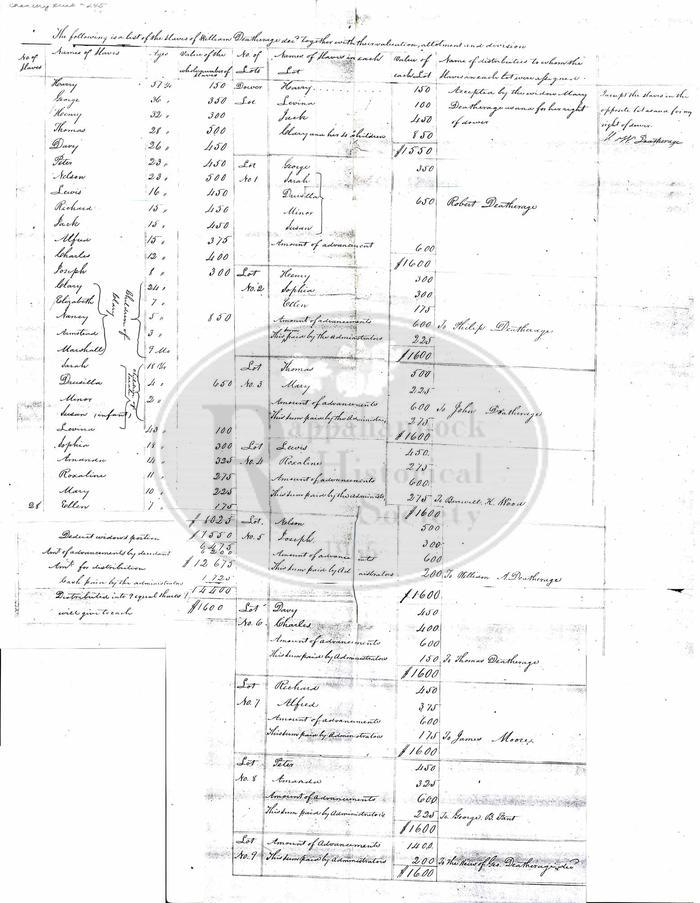 Chancery Suit # 245
The following is a list of the Slaves of William Deatherage decd together with the valuation, allotment and division
No of Slaves
Names of Slaves
Ages
Value of the whole number of Slaves
No. of Lots
Names of Slaves in each Lot
Value of each Lot
Name of distributees to whom the Slaves in each lot were assigned
Harry 57 150 Dower Harry 150 Accepted by the widow Mary
George 36 350 Lot Levina 100 Deatherage as and for her right
Henry 32 300 Jack 450 of dower
Thomas 28 500 Clary and her 4 Children 850
Davy 26 450 $1550
I accept the slaves in the
opposite lot as and for my
right of dower.
Deatherage
Peter 23 450 Lot George 350
Nelson 23 500 No 1 Sarah
Lewis 16 450 Drusilla
Richard 15 450 Minor 650 Robert Deatherage
Jack 15 450 Susan
Alfred 15 375 Amount of advancement 600
Charles 12 400 $1600
Joseph 8 300 Lot Henry 300
Clary 24 No. 2 Sophia 300
Elizabeth 7 Ellen 175
Nancy 5 850 Amount of advancements 600 To Philip Deatherage
Armstead 3 This sum paid by the Administrators 225
Marshall 9 Mo $1600
Children of Clary
Sarah 18 Lot Thomas 500
Drusilla 4 650 No. 3 Mary 225
Minor 2 Amount of advancements 600 To John Deatherage
Susan (infant) This sum paid by the Administrators 275
$1600
Levina 43 100
Sophia 18 300 Lot Lewis 450
Amanda 14 325 No. 4 Roxaline 275
Roxaline 11 275 Amount of advancements 600
Mary 10 225 This sum paid by the Administrators 275 To H. Wood
28 Ellen 7 175 $1600
$8025 Lot Nelson 500
Deduct widows portion $1550 No. 5 Joseph 300
6475
Amt of advancements by decedent Amount of advancements 600
Amt for distribution $12675 This sum paid by Administrators 200 To William A. Deatherage
Cash paid by the administrators 1725 $1600
Distributed into 9 equal shares 14400
will give to each $1600
Lot Davy 450
No. 6 Charles 400
Amount of advancements 600
This sum paid by Administrators 150 To Thomas Deatherage
$1600
Lot Richard 450
No. 7 Alfred 375
Amount of advancements 600
This sum paid by Administrators 175 To James Moore
$1600
Lot Peter 450
No. 8 Amanda 325
Amount of advancements 600
This sum paid by Administrators 225 To George B.
$1600
Lot Amount of Advancements 1400
No. 9 This sum paid by Administrators 200 To the heirs of Geo. Deatherage decd
$1600
Rappahannock
Historical
Society